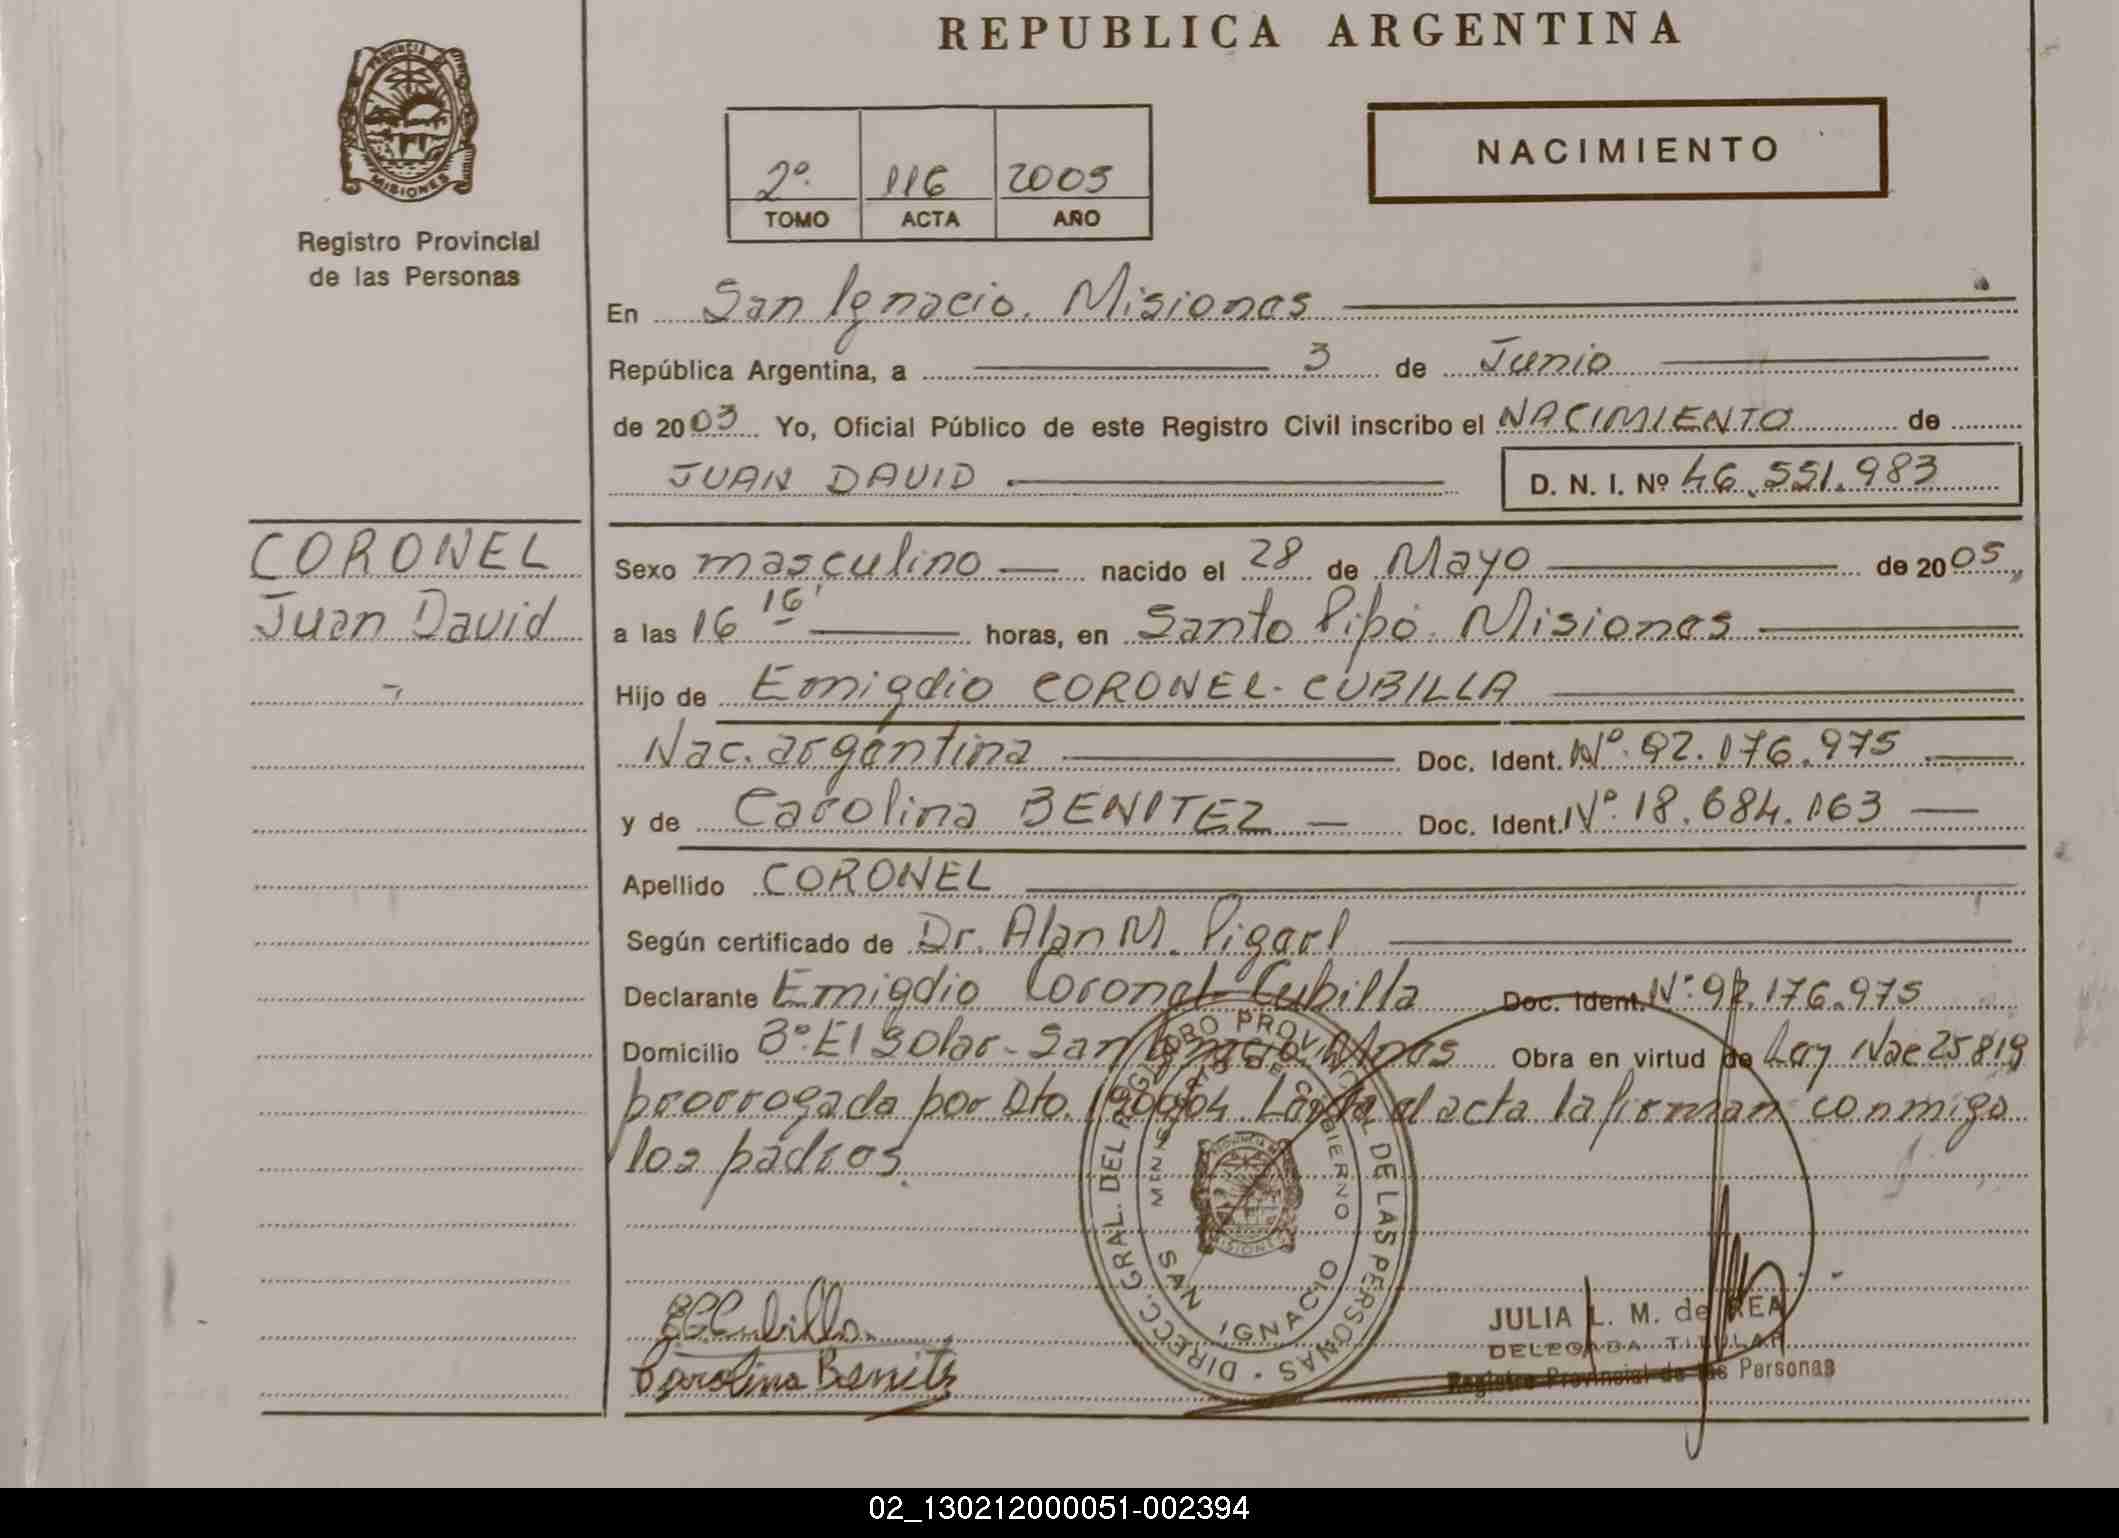 REPUBLICA ARGENTINA
PROVINCIA DE
MISIONES
Registro Provincial
de las Personas
2º 116 2005
TOMO ACTA AÑO
NACIMIENTO
En San Ignacio. Misiones
República Argentina, a 3 de Junio
de 2003 Yo, Oficial Público de este Registro Civil inscribo el NACIMIENTO de
JUAN DAVID D. N. I. Nº 46.551.983
CORONEL
Juan David
Sexo masculino nacido el 28 de Mayo de 2005,
a las 16 16' horas, en Santo Pipó. Misiones
Hijo de Emigdio CORONEL-CUBILLA
Nac. argentina Doc. Ident. Nº 92.176.975
y de Carolina BENITEZ Doc. Ident. Nº 18.684.163
Apellido CORONEL
Según certificado de Dr. Alan M.
Declarante Emigdio Coronel-Cubilla Doc. Ident. Nº 92.176.975
Domicilio Bº El Solar- San Ignacio Mnes Obra en virtud de Ley Nac 25819
prorrogada por Dto. Leida el acta la firman conmigo
los padres.
DIRECC. GRAL. DEL REGISTRO PROVINCIAL DE LAS PERSONAS
MINISTERIO DE GOBIERNO
SAN IGNACIO
PROVINCIA DE
MISIONES
Cubilla
Carolina Benitz
JULIA L. M. de REA
DELEGADA TITULAR
Registro Provincial de las Personas
02_130212000051-002394